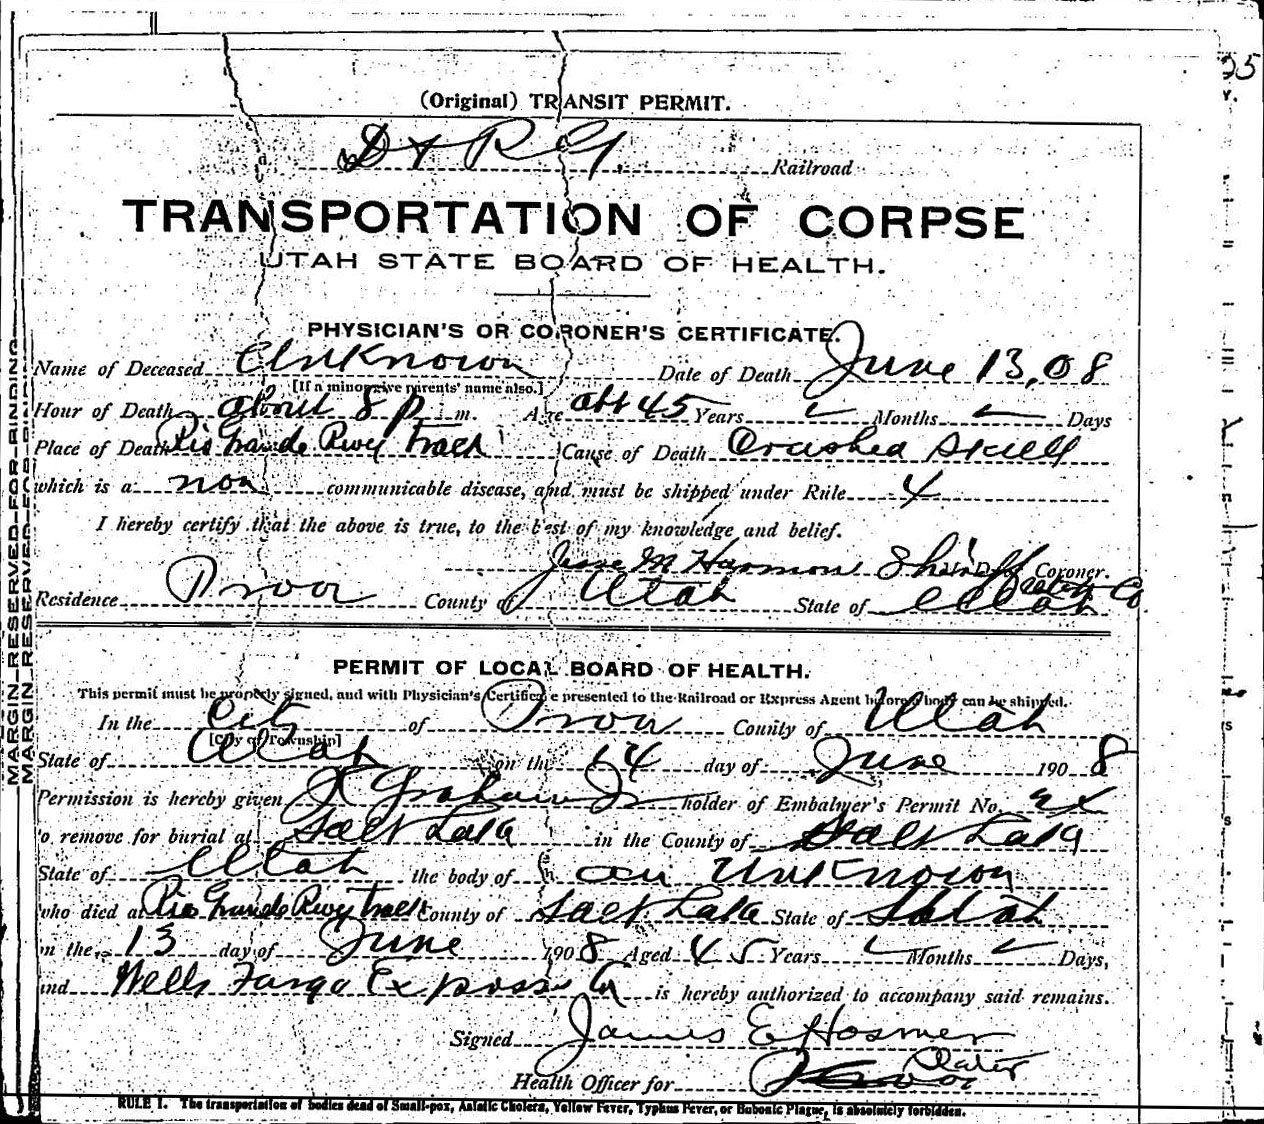 25
(Original) TRANSIT PERMIT.
D & R G Railroad
TRANSPORTATION OF CORPSE
UTAH STATE BOARD OF HEALTH.
PHYSICIAN'S OR CORONER'S CERTIFICATE.
Name of Deceased Unknown Date of Death June 13, 08
[If a minor give parents' name also.]
Hour of Death about 8 p m. Age abt 45 Years Months Days
Place of Death Rio Grande Rwy Track Cause of Death Crushed Skull
which is a non communicable disease, and must be shipped under Rule 4
I hereby certify that the above is true, to the best of my knowledge and belief.
Jesse M Harmon Sheriff Coroner.
Utah Co
Residence Provo County of Utah State of Utah
PERMIT OF LOCAL BOARD OF HEALTH.
This permit must be properly signed, and with Physician's Certificate presented to the Railroad or Express Agent before body can be shipped.
In the City of Provo County of Utah
[City or Township]
State of Utah on the 14 day of June 1908
Permission is hereby given Graham Jr holder of Embalmer's Permit No.
to remove for burial at Salt Lake in the County of Salt Lake
State of Utah the body of an Unknown
who died at Rio Grande Rwy Track County of Salt Lake State of Utah
in the 13 day of June 1908 Aged 45 Years Months Days,
and Wells Fargo Express Co is hereby authorized to accompany said remains.
Signed James E Hosmer
Health Officer for
RULE 1. The transportation of bodies dead of Small-pox, Asiatic Cholera, Yellow Fever, Typhus Fever, or Bubonic Plague, is absolutely forbidden.
MARGIN RESERVED FOR BINDING
MARGIN RESERVED FOR BINDING